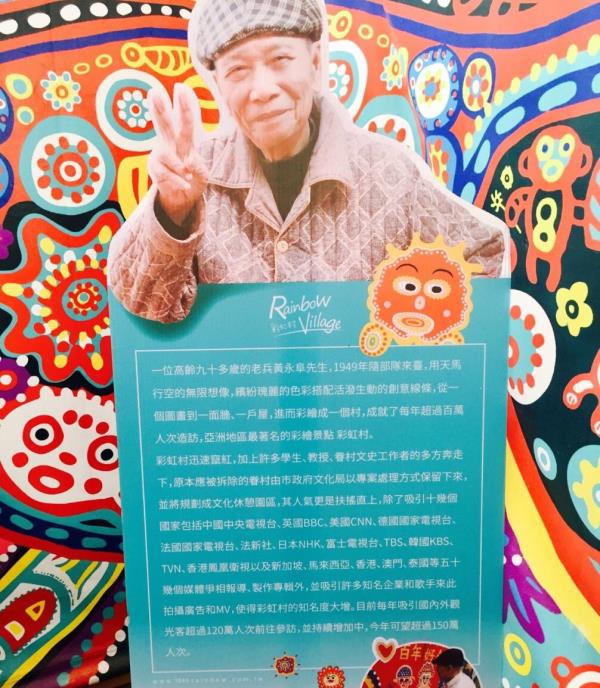 Rainbow
彩虹村 Village
一位高齡九十多歲的老兵黃永阜先生,1949年隨部隊來臺,用天馬
行空的無限想像,繽紛瑰麗的色彩搭配活潑生動的創意線條,從一
個圖畫到一面牆、一戶屋,進而彩繪成一個村,成就了每年超過百萬
人次造訪,亞洲地區最著名的彩繪景點 彩虹村。
彩虹村迅速竄紅,加上許多學生、教授、眷村文史工作者的多方奔走
下,原本應被拆除的眷村由市政府文化局以專案處理方式保留下來,
並將規劃成文化休憩園區,其人氣更是扶搖直上,除了吸引十幾個
國家包括中國中央電視台、英國BBC、美國CNN、德國國家電視台、
法國國家電視台、法新社、日本NHK、富士電視台、TBS、韓國KBS、
TVN、香港鳳凰衛視以及新加坡、馬來西亞、香港、澳門、泰國等五十
幾個媒體爭相報導、製作專輯外,並吸引許多知名企業和歌手來此
拍攝廣告和MV,使得彩虹村的知名度大增。目前每年吸引國內外觀
光客超過120萬人次前往參訪,並持續增加中,今年可望超過150萬
人次。
www.1949rainbow.com.tw
百年好